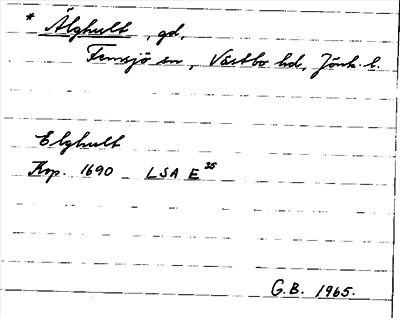 * Älghult, gd,
Femsjö sn, Västbo hd, Jönk. l.
Elghult
Kop. 1690 LSA E 35
G.B. 1965.